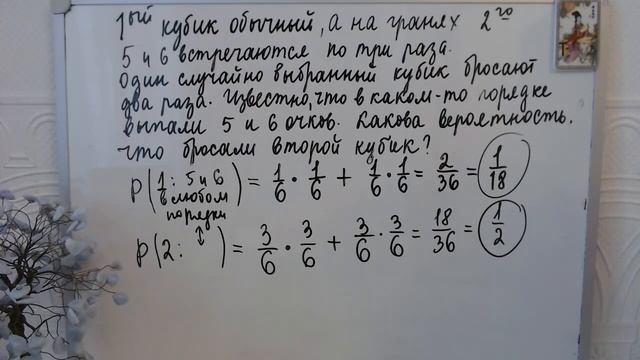 1ый кубик обычный, а на гранях 2го
5 и 6 встречаются по три раза.
Один случайно выбранный кубик бросают
два раза. Известно, что в каком-то порядке
выпали 5 и 6 очков. Какова вероятность,
что бросали второй кубик?
P(1: 5 и 6 в любом порядке) = 1/6 · 1/6 + 1/6 · 1/6 = 2/36 = 1/18
P(2: ↕) = 3/6 · 3/6 + 3/6 · 3/6 = 18/36 = 1/2